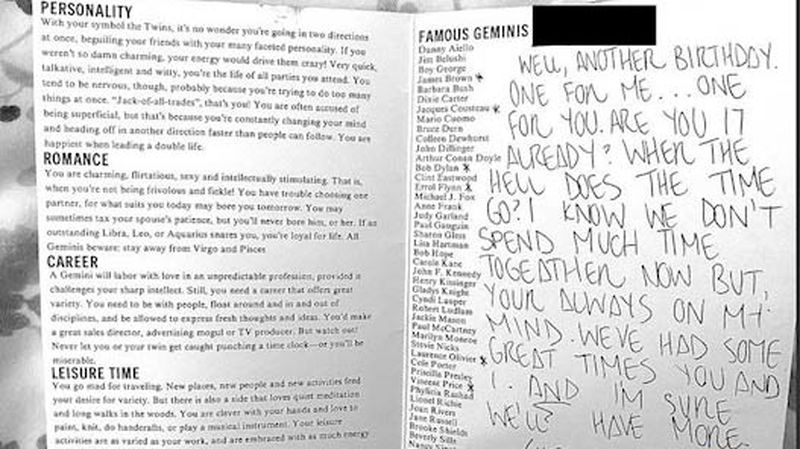 PERSONALITY
With your symbol the Twins, it's no wonder you're going in two directions
at once, beguiling your friends with your many faceted personality. If you
weren't so damn charming, your energy would drive them crazy! Very quick,
talkative, intelligent and witty, you're the life of all parties you attend. You
tend to be nervous, though, probably because you're trying to do too many
things at once. "Jack-of-all-trades", that's you! You are often accused of
being superficial, but that's because you're constantly changing your mind
and heading off in another direction faster than people can follow. You are
happiest when leading a double life.
ROMANCE
You are charming, flirtatious, sexy and intellectually stimulating. That is,
when you're not being frivolous and fickle! You have trouble choosing one
partner, for what suits you today may bore you tomorrow. You may
sometimes tax your spouse's patience, but you'll never bore him, or her. If an
outstanding Libra, Leo, or Aquarius snares you, you're loyal for life. All
Geminis beware: stay away from Virgo and Pisces
CAREER
A Gemini will labor with love in an unpredictable profession, provided it
challenges your sharp intellect. Still, you need a career that offers great
variety. You need to be with people, float around and in and out of
disciplines, and be allowed to express fresh thoughts and ideas. You'd make
a great sales director, advertising mogul or TV producer. But watch out!
Never let you or your twin get caught punching a time clock—or you'll be
miserable.
LEISURE TIME
You go mad for traveling. New places, new people and new activities feed
your desire for variety. But there is also a side that loves quiet meditation
and long walks in the woods. You are clever with your hands and love to
paint, knit, do handcrafts, or play a musical instrument. Your leisure
activities are as varied as your work, and are embraced with as much energy
FAMOUS GEMINIS
Danny Aiello
Jim Belushi
Boy George
James Brown
Barbara Bush
Dixie Carter
Jacques Cousteau
Mario Cuomo
Bruce Dern
Colleen Dewhurst
John Dillinger
Arthur Conan Doyle
Bob Dylan
Clint Eastwood
Errol Flynn
Michael J. Fox
Anne Frank
Judy Garland
Paul Gauguin
Sharon Gless
Lisa Hartman
Bob Hope
Carole Kane
John F. Kennedy
Henry Kissinger
Gladys Knight
Cyndi Lauper
Robert Ludlum
Jackie Mason
Paul McCartney
Marilyn Monroe
Stevie Nicks
Laurence Olivier
Cole Porter
Priscilla Presley
Vincent Price
Phylicia Rashad
Lionel Richie
Joan Rivers
Jane Russell
Brooke Shields
Beverly Sills
WELL, ANOTHER BIRTHDAY.
ONE FOR ME...ONE
FOR YOU. ARE YOU 17
ALREADY? WHEN THE
HELL DOES THE TIME
GO? I KNOW WE DON'T
SPEND MUCH TIME
TOGEATHER NOW BUT,
YOUR ALWAYS ON MY
MIND. WE'VE HAD SOME
GREAT TIMES YOU AND
I. AND I'M SURE
WE'LL HAVE MORE.